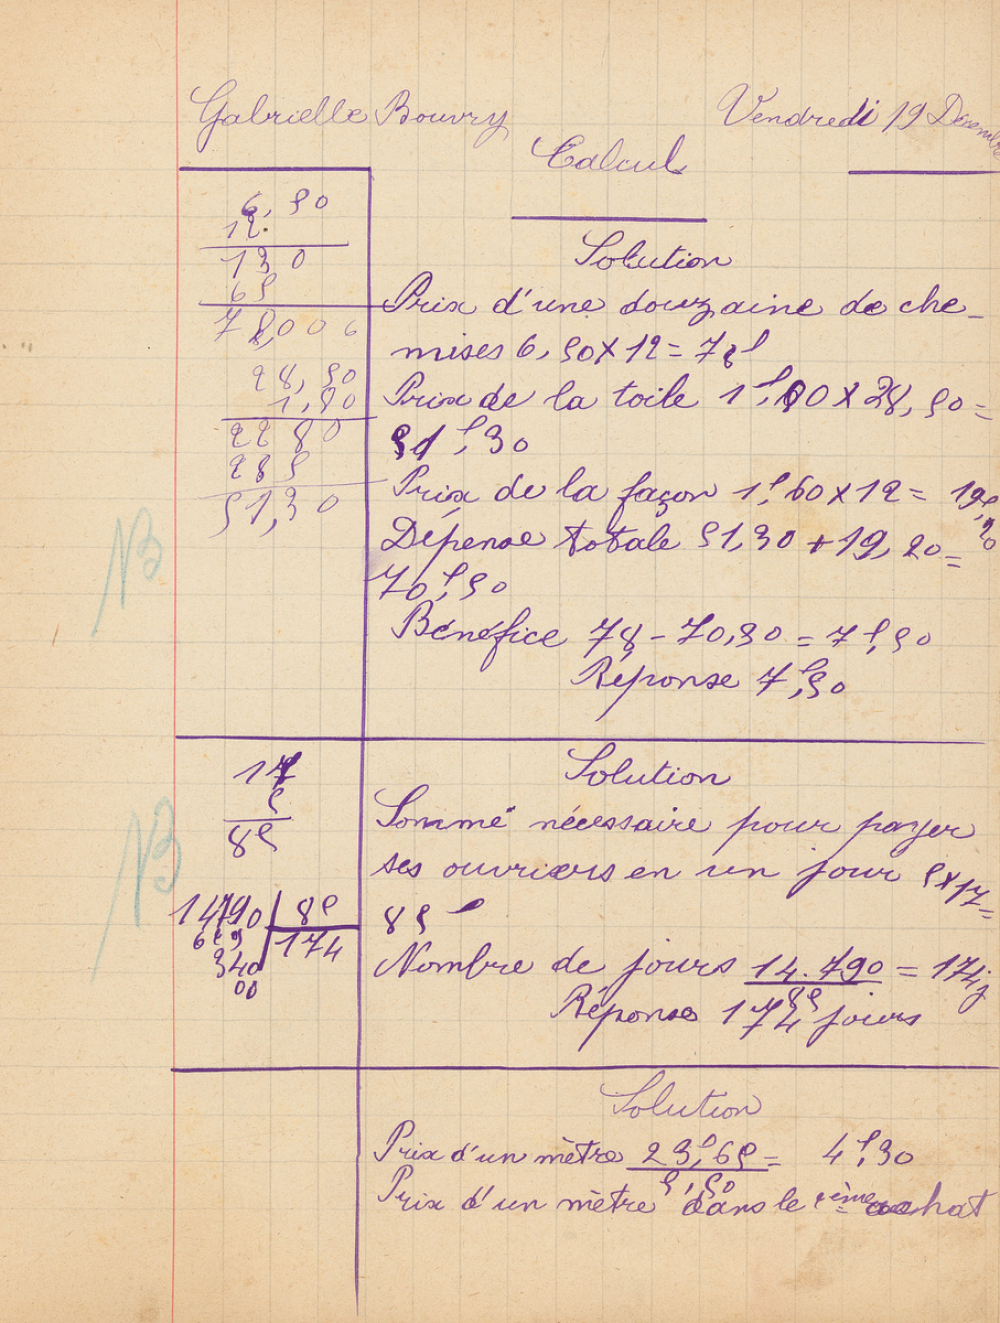 Gabrielle Bouvry
Vendredi 19 Décembre
Calcul
6,50
12.
130
65
78,00 6
28,50
1,80
2280
285
51,30
Solution
Prix d'une douzaine de che-
mises 6,50 x 12 = 78f
Prix de la toile 1f,80 x 28,50 =
51f,30
Prix de la façon 1f,60 x 12 = 19f,20
Dépense totale 51,30 + 19,20 =
70f,50
Bénéfice 78 - 70,50 = 7f,50
Réponse 7f,50
NB
17
5
85
14790 | 85
629 | 174
340
00
Solution
Somme nécessaire pour payer
ses ouvriers en un jour 5 x 17 =
85f
Nombre de jours 14.790 = 174j
85
Réponse 174 jours
NB
Solution
Prix d'un mètre 23f,65 = 4f,30
5,50
Prix d'un mètre dans le 2ème achat